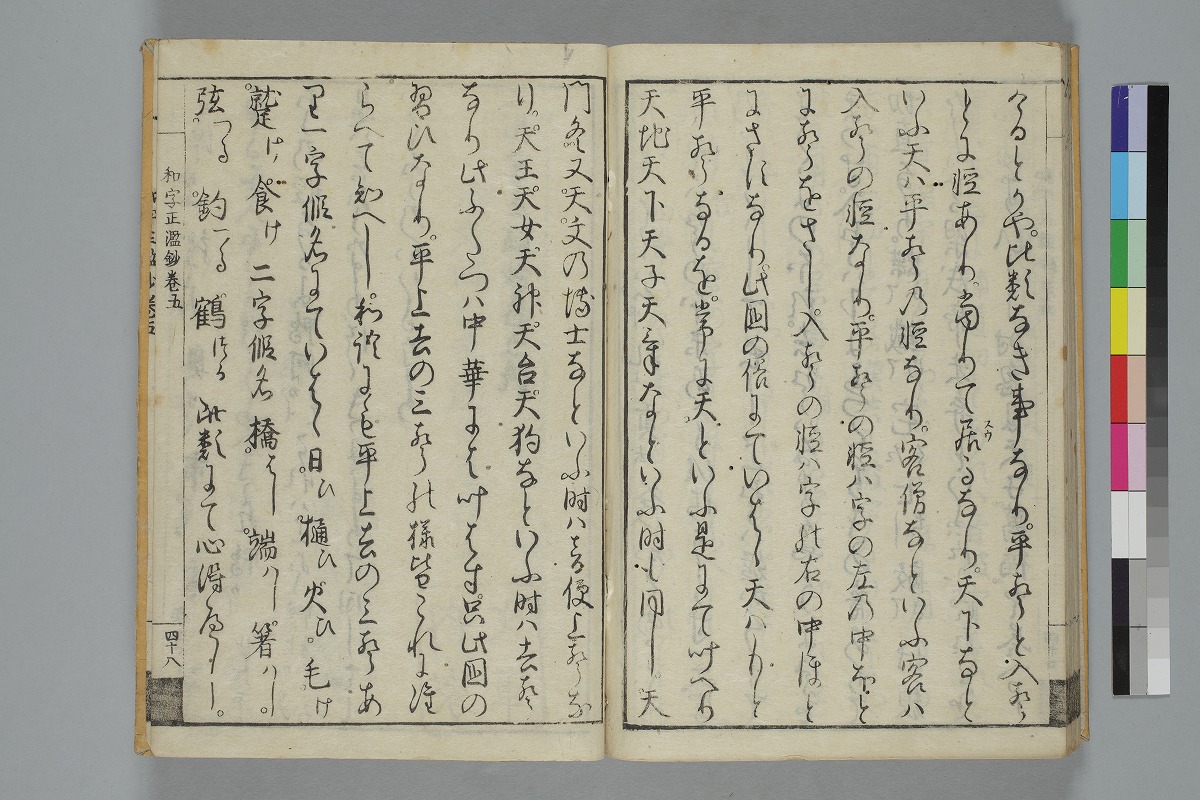 くるとかや。比類なき事なり。平声と入声
とに軽あり。常のて居るなり。天下なと
スウ
いふ天ハ平声の軽なり。客僧なといふ客ハ
入声の軽なり。平声の軽ハ字の左の中ほと
に声をさし、入声の軽ハ字の右の中ほと
にさすなり。此国の俗にていはく、天ハもと
平声なるを、常に天といふ是にて叶へり
天地天下天子天気なといふ時も同し。天
門冬又天文の博士なといふ時ハ音便上声な
り。天王天女天神天台天狗なといふ時ハ去声
なり。此ふたつハ中華にもは叶はす。只此国の
習ひなり。平上去の三声の様皆これに准
らへて知へし。和語にも平上去の三声あ
り。一字仮名にていはゝ、日ひ 樋ひ 火ひ。毛け
蹴け 食け 二字仮名 橋はし 端ハし 箸ハし。
弦つる 釣つる 鶴つる 此類にて心得へし。
和字正濫鈔巻五
四十八